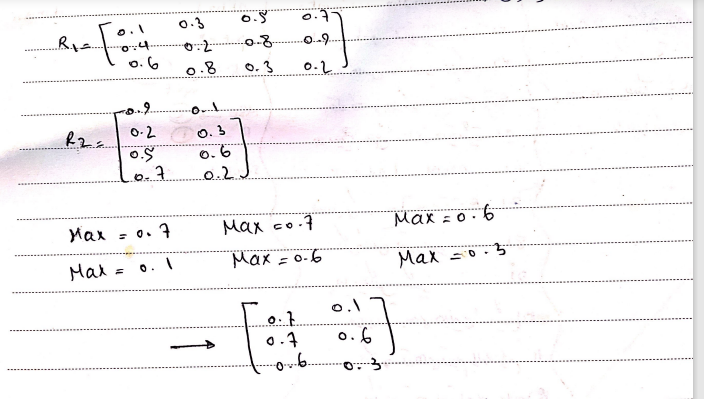 R1 = [ 0.1 0.3 0.5 0.7
0.4 0.2 0.8 0.9
0.6 0.8 0.3 0.2 ]
R2 = [ 0.9 0.1
0.2 0.3
0.5 0.6
0.7 0.2 ]
Max = 0.7 Max = 0.7 Max = 0.6
Max = 0.1 Max = 0.6 Max = 0.3
→ [ 0.7 0.1
0.7 0.6
0.6 0.3 ]